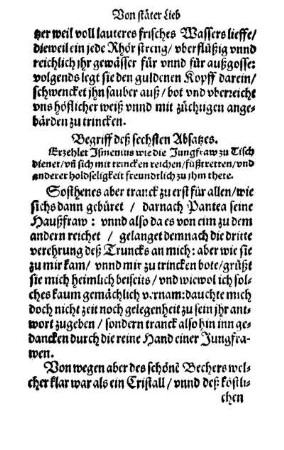 Von ståter Lieb
tzer weil voll lauteres frisches Wassers lieffe/
dieweil ein jede Rhör streng/ vberflüßig vnnd
reichlich jhr gewässer für vnnd für außgosse:
volgends legt sie den guldenen Kopff darein/
schwencket jhn sauber auß/ bot vnd vberreicht
vns höflicher weiß vnnd mit züchtigen ange-
bärden zu trincken.
Begriff deß sechsten Absatzes.
Erzehlet Ismenius wie die Jungfraw zu Tisch
diener/ vñ sich mit trancken reichen/ fußtretten/ vnd
anderer holdseligkeit freundlich zu jhm there.
Sosthenes aber tranck zu erst für allen/ wie
sichs dann gebüret / darnach Pantea seine
Haußfraw : vnnd also da es von eim zu dem
andern reichet / gelanget demnach die dritte
verehrung deß Truncks an mich: aber wie sie
zu mir kam/ vnnd mir zu trincken bote/ grüßt
sie mich heimlich beiseits / vnd wiewol ich sol-
ches kaum gemächlich vernam: dauchte mich
doch nicht zeit noch gelegenheit zu sein jhr ant-
wort zugeben / sondern tranck also hin inn ge-
dancken durch die reine Hand einer Jungfra-
wen.
Von wegen aber des schönẽ Bechers wel-
cher klar war als ein Cristall / vnnd deß köstli-
chen